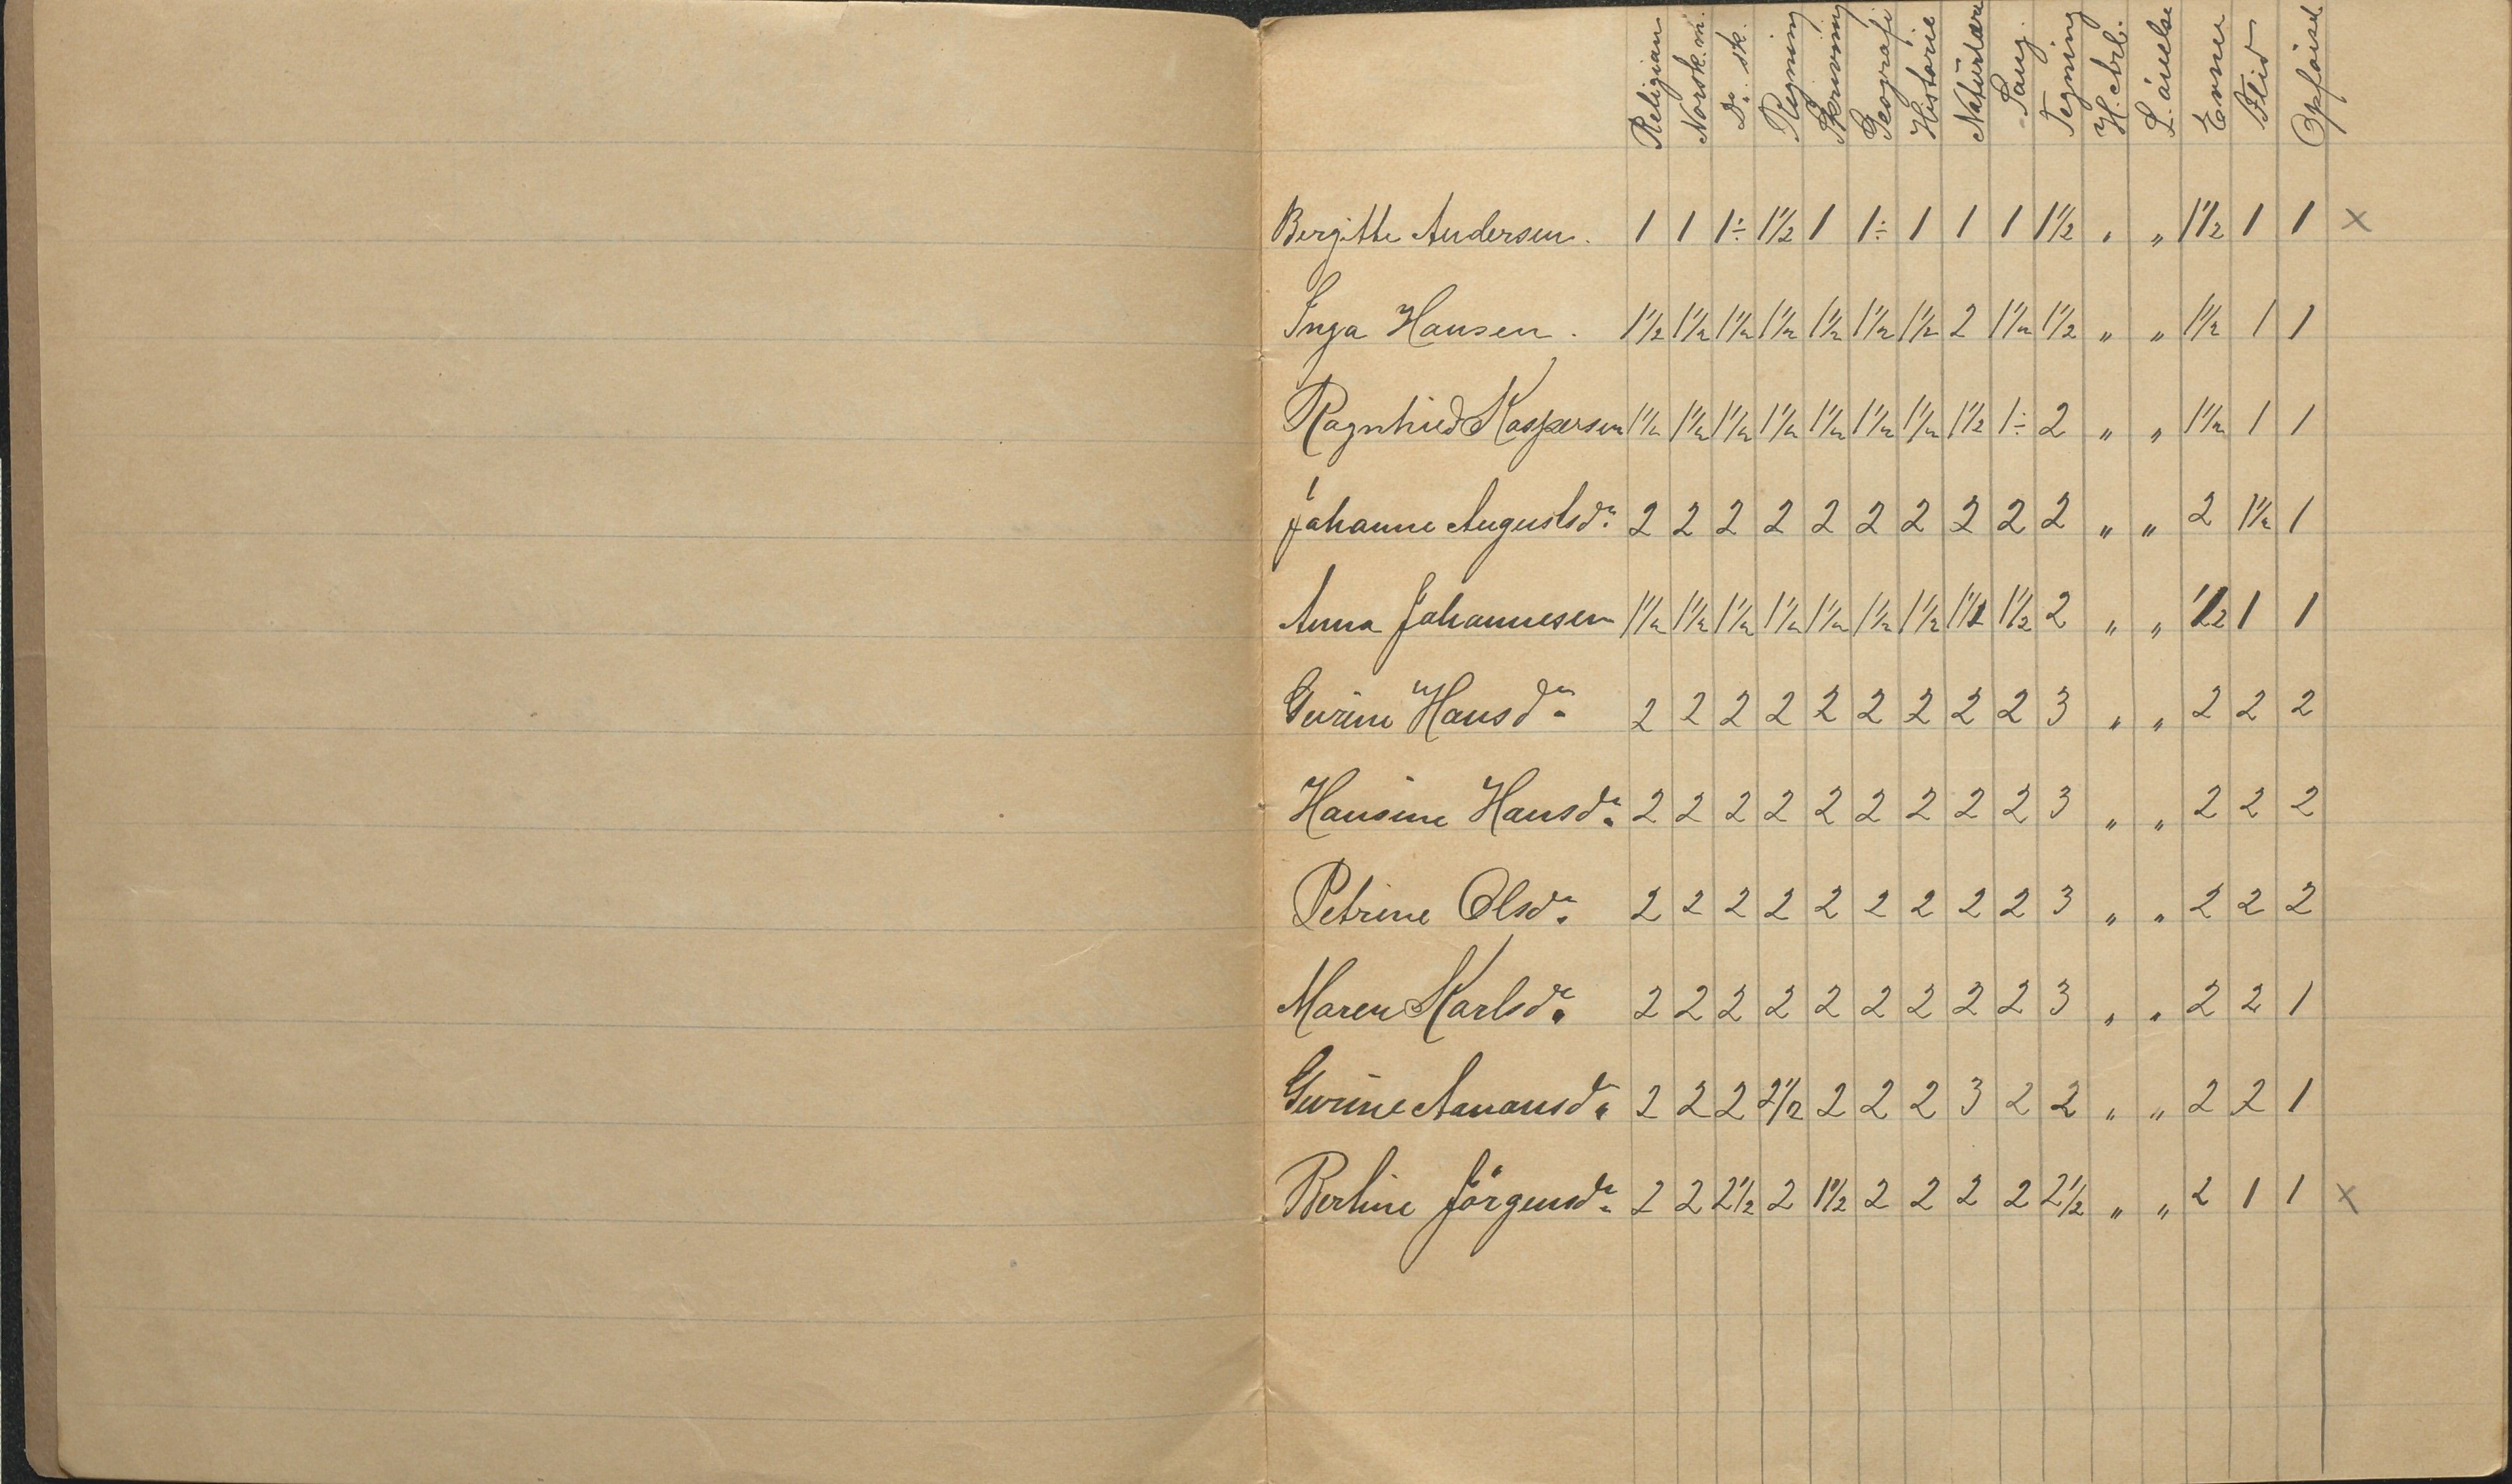 Religion Norsk. m. Do. sk. Regning Skrivning Geografi Historie Naturlære Sang. Tegning H.arb. L.øvelse Evne Flid Opførsel
Bergitte Andersen. 1 1 1÷ 1½ 1 1÷ 1 1 1 1½ " " 1½ 1 1 x
Inga Hansen. 1½ 1½ 1½ 1½ 1½ 1½ 1½ 2 1½ 1½ " " 1½ 1 1
Ragnhild Kaspersen 1½ 1½ 1½ 1½ 1½ 1½ 1½ 1½ 1÷ 2 " " 1½ 1 1
Johanne Augustsdr. 2 2 2 2 2 2 2 2 2 2 " " 2 1½ 1
Anna Johannesen 1½ 1½ 1½ 1½ 1½ 1½ 1½ 1½ 1½ 2 " " 1½ 1 1
Gurine Hansdr. 2 2 2 2 2 2 2 2 2 3 " " 2 2 2
Hansine Hansdr. 2 2 2 2 2 2 2 2 2 3 " " 2 2 2
Petrine Olsdr. 2 2 2 2 2 2 2 2 2 3 " " 2 2 2
Maren Karlsdr. 2 2 2 2 2 2 2 2 2 3 " " 2 2 1
Gurine Aanonsdr. 2 2 2 2½ 2 2 2 3 2 2 " " 2 2 1
Bertine Jörgensdr. 2 2 2½ 2 1½ 2 2 2 2 2½ " " 2 1 1 x